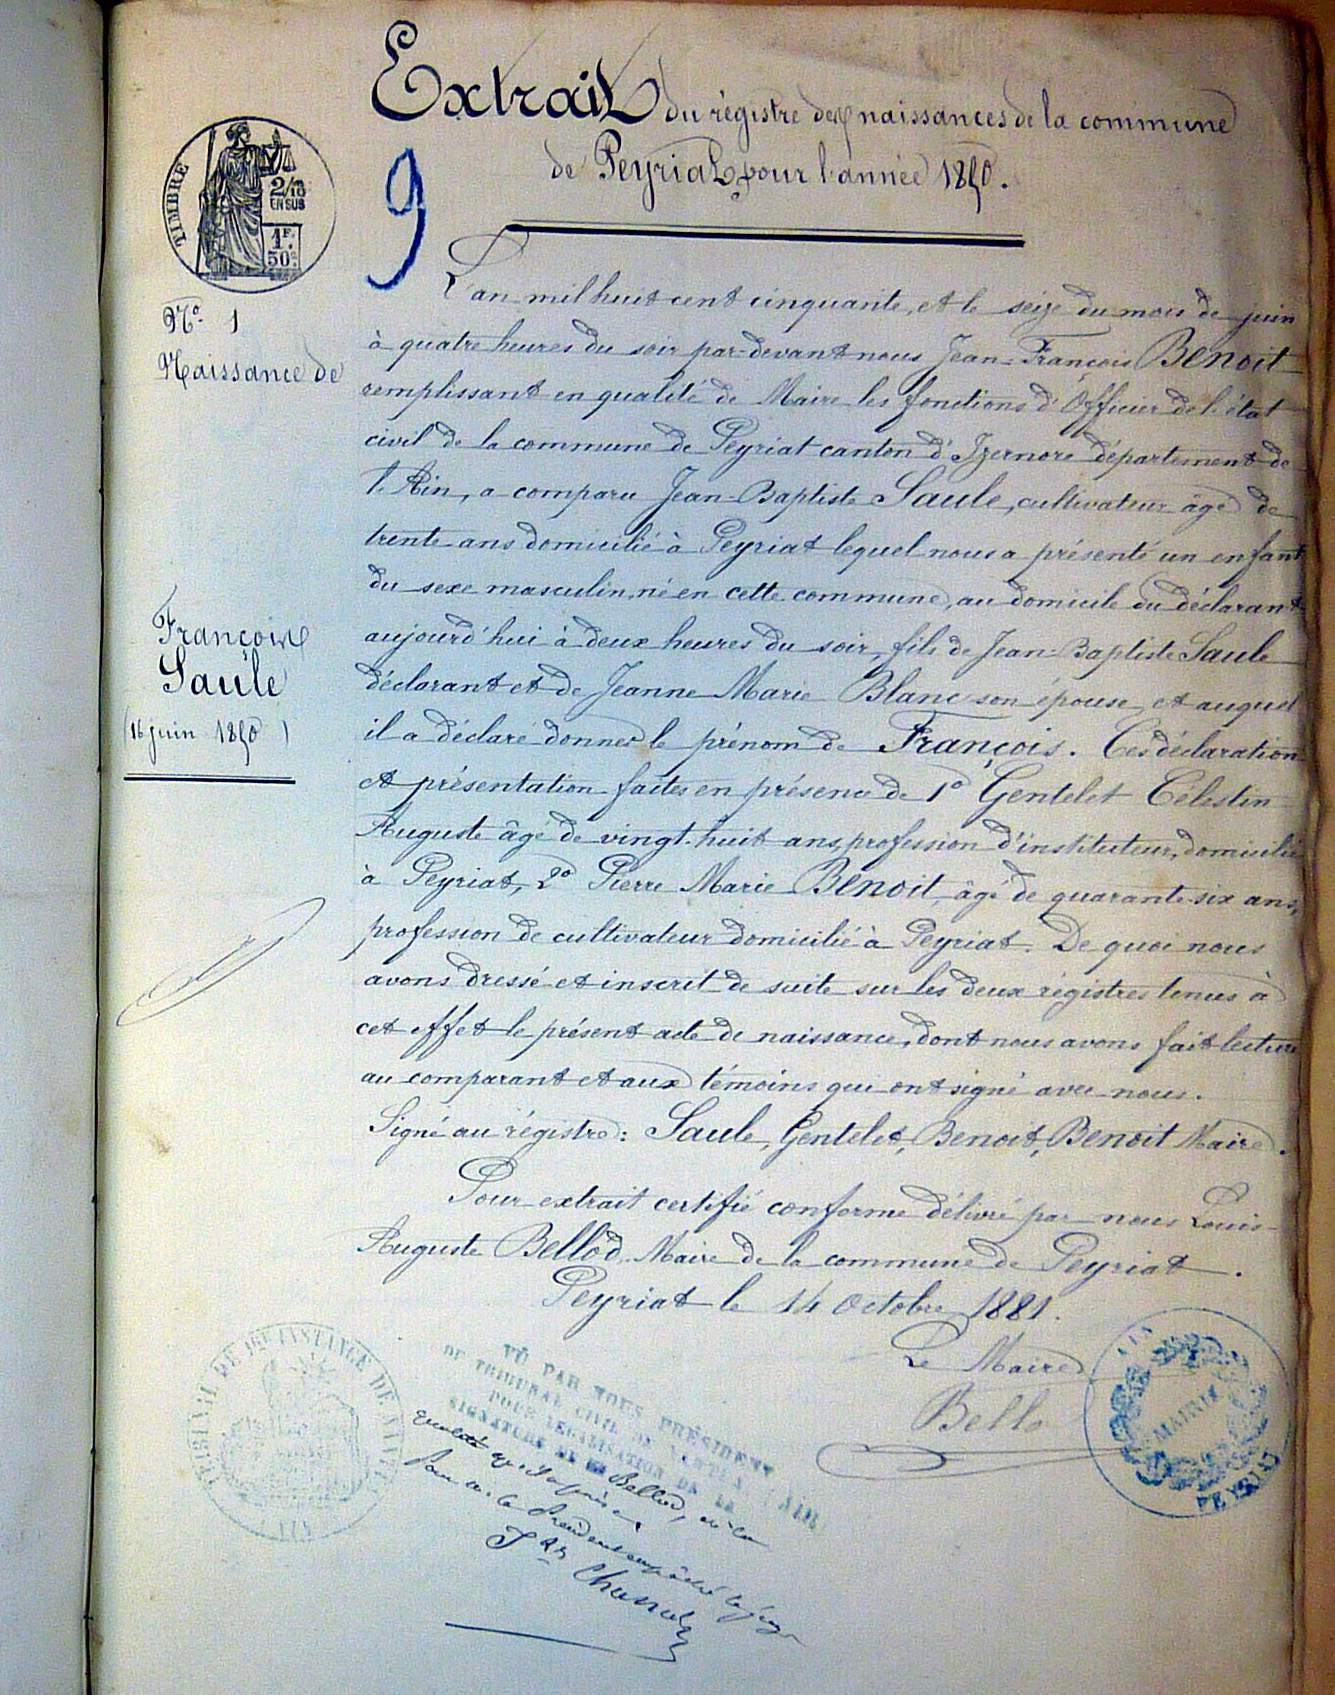 Extrait du régistre des naissances de la commune
de Peyriat, pour l'année 1850.
TIMBRE
2/10
EN SUS
1F.
50c.
9
No 1
Naissance de
François
Saule
(16 juin 1850)
L'an mil huit cent cinquante, et le seize du mois de juin
à quatre heures du soir par-devant nous Jean-François Benoit
remplissant en qualité de Maire les fonctions d'Officier de l'état
civil de la commune de Peyriat canton d'Izernore département de
l'Ain, a comparu Jean-Baptiste Saule, cultivateur âgé de
trente ans domicilié à Peyriat lequel nous a présenté un enfant
du sexe masculin, né en cette commune, au domicile du déclarant
aujourd'hui à deux heures du soir, fils de Jean-Baptiste Saule
déclarant et de Jeanne Marie Blanc son épouse, et auquel
il a déclaré donner le prénom de François. Ces déclaration
et présentation faites en présence de 1o Gentelet Célestin
Auguste âgé de vingt-huit ans, profession d'instituteur, domicilié
à Peyriat, 2o Pierre Marie Benoit, âgé de quarante-six ans,
profession de cultivateur domicilié à Peyriat. De quoi nous
avons dressé et inscrit de suite sur les deux régistres tenus à
cet effet le présent acte de naissance, dont nous avons fait lecture
au comparant et aux témoins qui ont signé avec nous.
Signé au régistre: Saule, Gentelet, Benoit, Benoit Maire.
Pour extrait certifié conforme délivré par nous Louis-
Auguste Bellod Maire de la commune de Peyriat.
Peyriat le 14 Octobre 1881.
Le Maire
Bello
AIN
MAIRIE
PEYRIAT
TRIBUNAL DE 1re INSTANCE DE
VU PAR NOUS PRÉSIDENT
DU TRIBUNAL CIVIL DE NANTUA (AIN
POUR LEGALISATION DE LA
SIGNATURE DE M. Bellod,